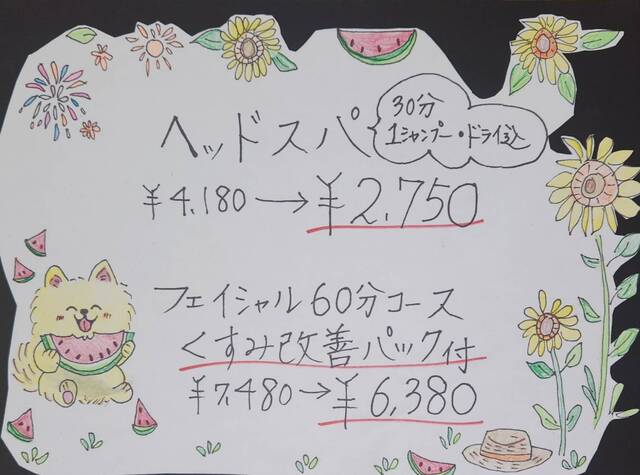 ヘッドスパ
30分
1シャンプー・ドライ込
¥4,180→¥2,750
フェイシャル60分コース
くすみ改善パック付
¥7,480→¥6,380